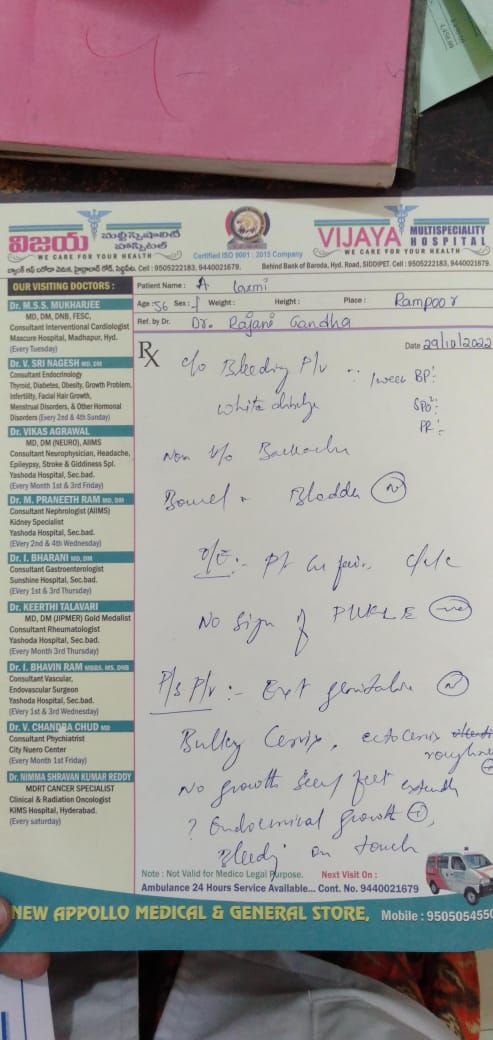 విజయ మల్టీస్పెషాలిటి హాస్పిటల్
WE CARE FOR YOUR HEALTH
Certified ISO 9001 : 2015 Company
VIJAYA MULTISPECIALITY HOSPITAL
WE CARE FOR YOUR HEALTH
బ్యాంక్ ఆఫ్ బరోడా వెనుక, హైద్రాబాద్ రోడ్, సిద్దిపేట. Cell : 9505222183, 9440021679.
Behind Bank of Baroda, Hyd. Road, SIDDIPET. Cell : 9505222183, 9440021679.
OUR VISITING DOCTORS :
Dr. M.S.S. MUKHARJEE
MD, DM, DNB, FESC,
Consultant Interventional Cardiologist
Maxcure Hospital, Madhapur, Hyd.
(Every Tuesday)
Dr. V. SRI NAGESH MD, DM
Consultant Endocrinology
Thyroid, Diabetes, Obesity, Growth Problem,
Infertility, Facial Hair Growth,
Menstrual Disorders, & Other Hormonal
Disorders (Every 2nd & 4th Sunday)
Dr. VIKAS AGRAWAL
MD, DM (NEURO), AIIMS
Consultant Neurophysician, Headache,
Epileypsy, Stroke & Giddiness Spl.
Yashoda Hospital, Sec.bad.
(Every Month 1st & 3rd Friday)
Dr. M. PRANEETH RAM MD, DM
Consultant Nephrologist (AIIMS)
Kidney Specialist
Yashoda Hospital, Sec.bad.
(EVery 2nd & 4th Wednesday)
Dr. I. BHARANI MD, DM
Consultant Gastroenterologist
Sunshine Hospital, Sec.bad.
(EVery 1st & 3rd Thursday)
Dr. KEERTHI TALAVARI
MD, DM (JIPMER) Gold Medalist
Consultant Rheumatologist
Yashoda Hospital, Sec.bad.
(Every Month 3rd Thursday)
Dr. I. BHAVIN RAM MBBS, MS, DNB
Consultant Vascular,
Endovascular Surgeon
Yashoda Hospital, Sec.bad.
(EVery 1st & 3rd Wednesday)
Dr. V. CHANDRA CHUD MD
Consultant Phychiatrist
City Nuero Center
(Every Month 1st Friday)
Dr. NIMMA SHRAVAN KUMAR REDDY
MDRT CANCER SPECIALIST
Clinical & Radiation Oncologist
KIMS Hospital, Hyderabad.
(Every saturday)
Patient Name : A Laxmi
Age : 56 Sex : f Weight : Height : Place : Rampoor
Ref. by Dr. Dr. Rajani Gandha
Rx
Date 29/10/2022
c/o Bleeding P/V 1week BP:
white SPO2:
PR:
H/o Backache
Bowel Bladder N
O/E :- Pt fair. c/c
No sign of
P/S P/V :- Ext genitalia N
Bulky Cervix. ectocervix
No growth seen
? Endocervical growth +,
Bleed on touch
Note : Not Valid for Medico Legal Purpose. Next Visit On :
Ambulance 24 Hours Service Available... Cont. No. 9440021679
NEW APPOLLO MEDICAL & GENERAL STORE, Mobile : 9505054550